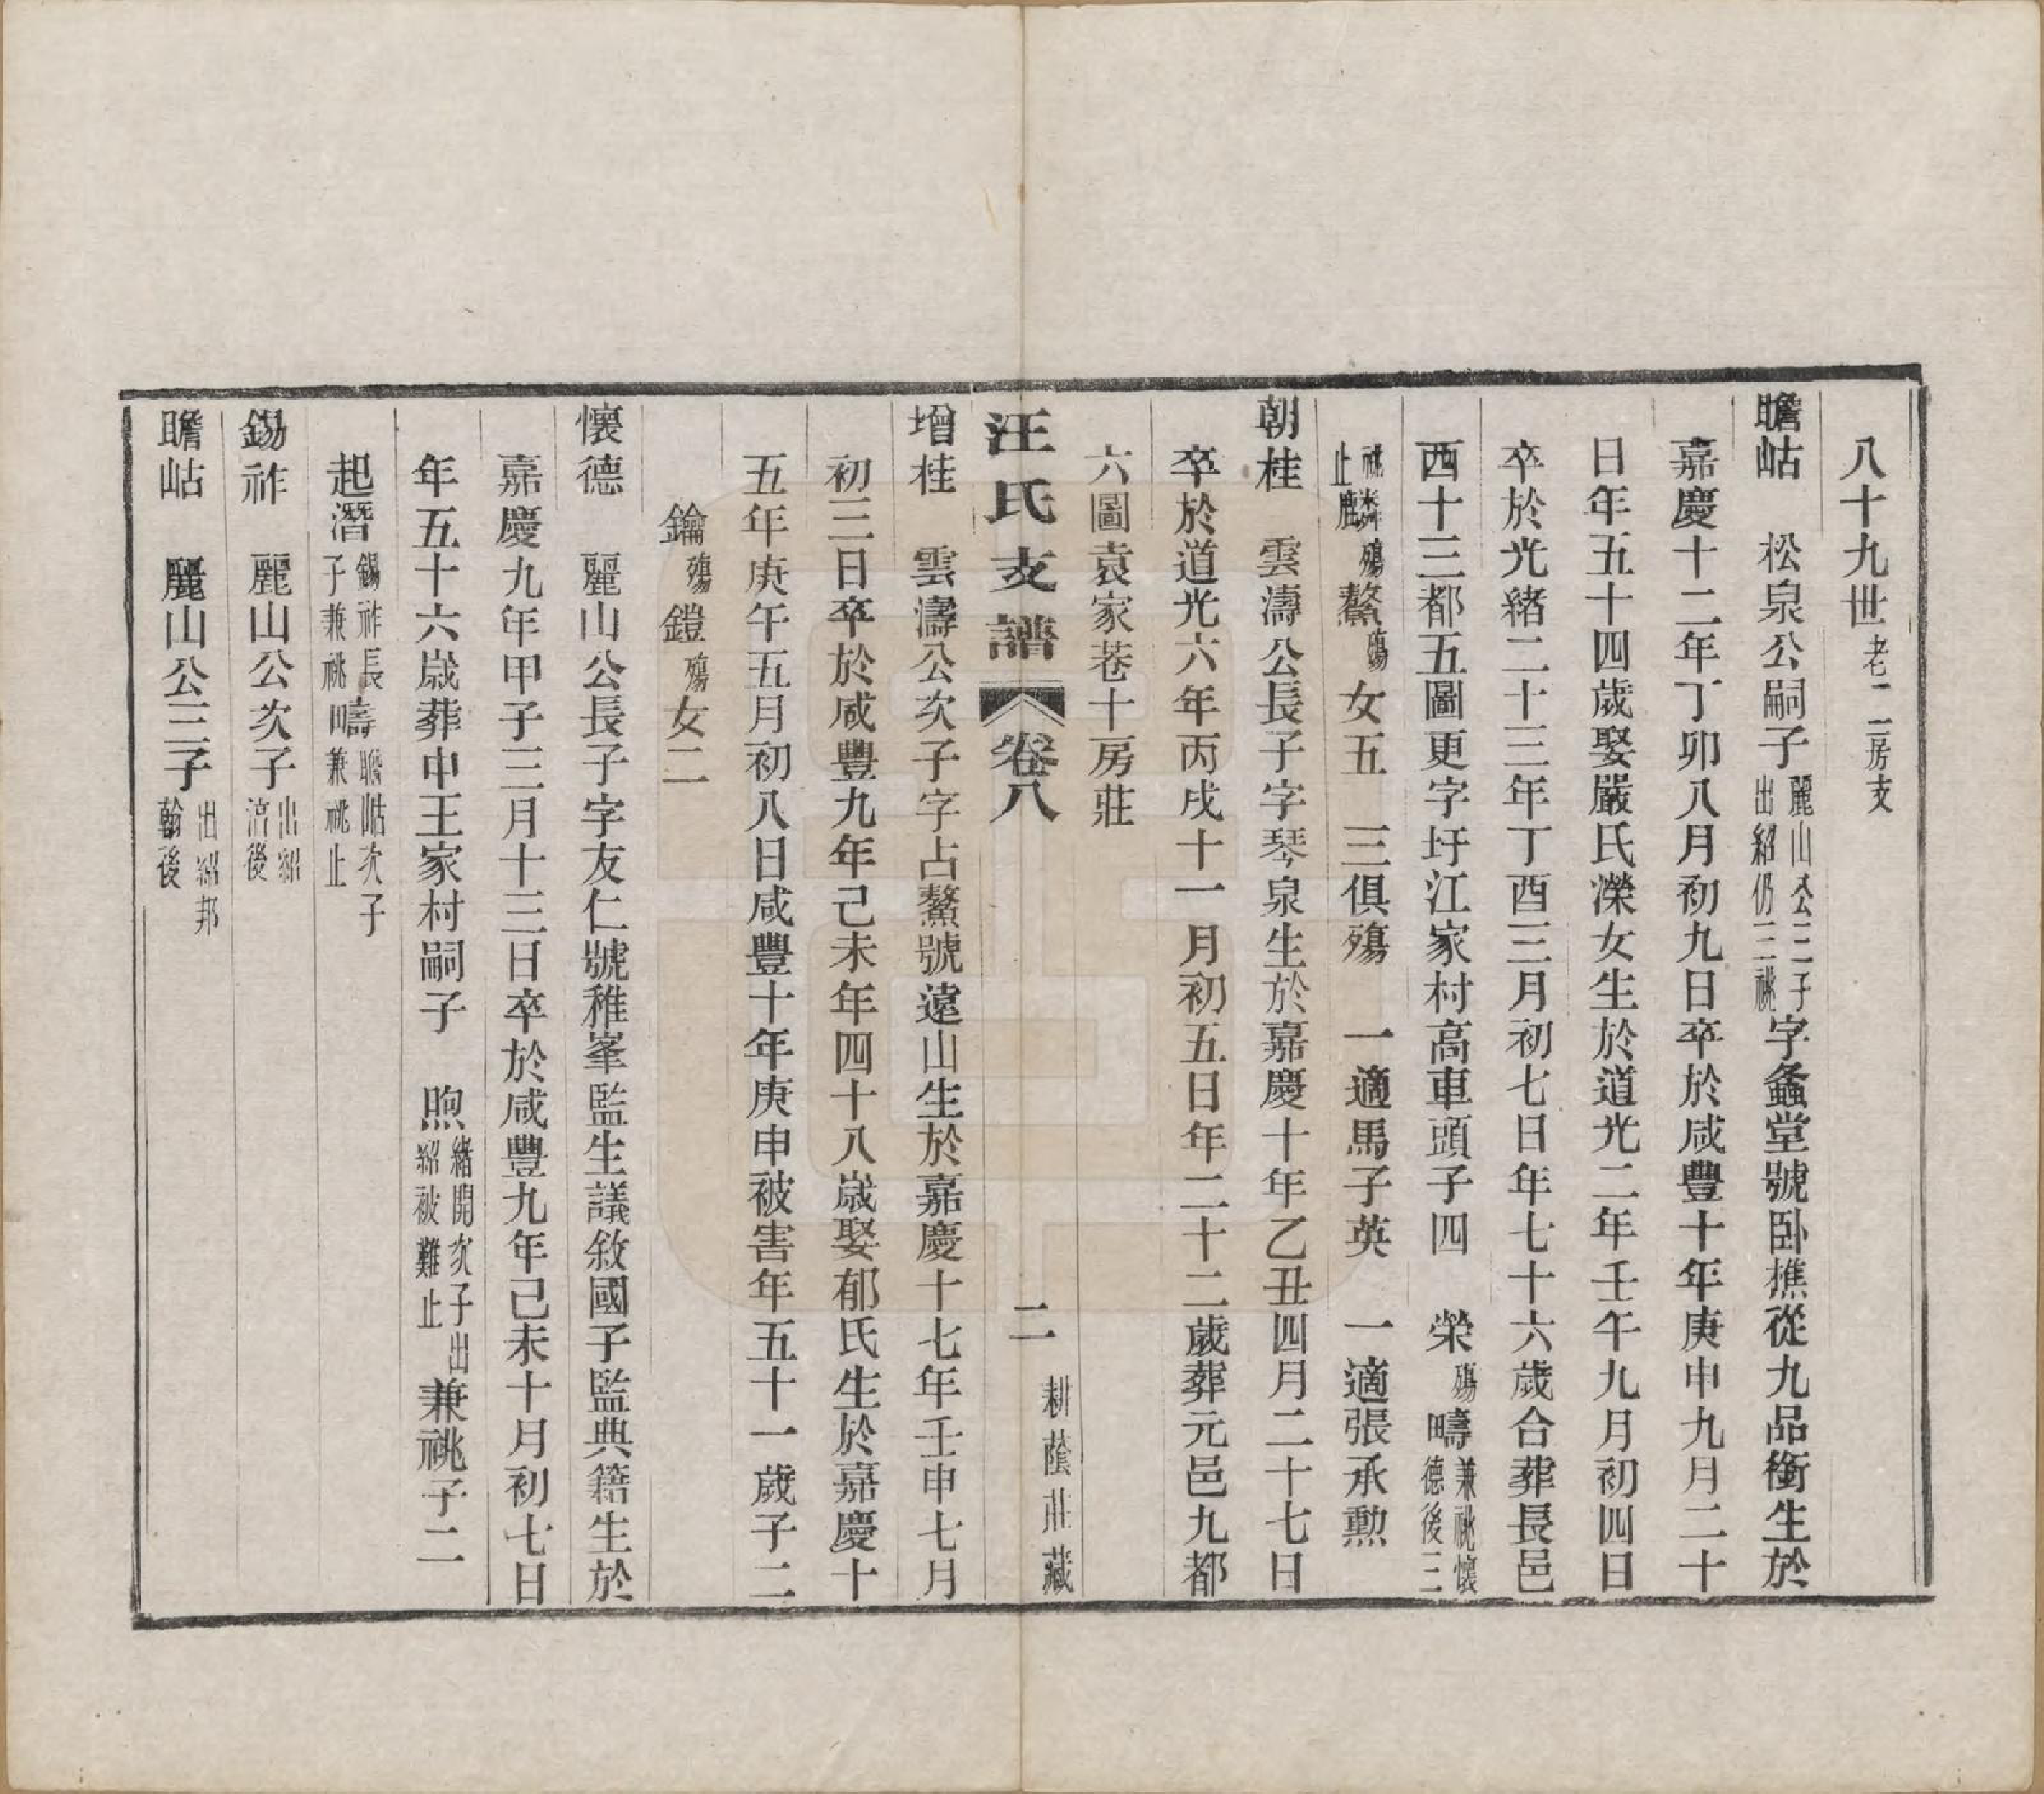 八十九世老二房支
瞻岵　松泉公嗣子麗山公三子出紹仍三祧字螽堂號臥樵從九品銜生於
嘉慶十二年丁卯八月初九日卒於咸豐十年庚申九月二十
日年五十四歲娶嚴氏濚女生於道光二年壬午九月初四日
卒於光緒二十三年丁酉三月初七日年七十六歲合葬長邑
西十三都五圖更字圩江家村高車頭子四　榮殤疇兼祧懷德後三
祧止麟麒殤鰲殤女五　三俱殤　一適馬子英　一適張承勲
朝桂　雲濤公長子字琴泉生於嘉慶十年乙丑四月二十七日
卒於道光六年丙戌十一月初五日年二十二歲葬元邑九都
六圖袁家巷十房莊
汪氏支譜　卷八　二　耕蔭莊藏
增桂　雲濤公次子字占鰲號遠山生於嘉慶十七年壬申七月
初三日卒於咸豐九年己未年四十八歲娶郁氏生於嘉慶十
五年庚午五月初八日咸豐十年庚申被害年五十一歲子二
鑰殤鎧殤女二
懷德　麗山公長子字友仁號稚峯監生議敘國子監典籍生於
嘉慶九年甲子三月十三日卒於咸豐九年己未十月初七日
年五十六歲葬中王家村嗣子　煦緒開次子出紹被難止兼祧子二
起潛錫祚長子兼祧疇瞻岵次子兼祧止
錫祚　麗山公次子出紹淯後
瞻岵　麗山公三子出紹邦翰後